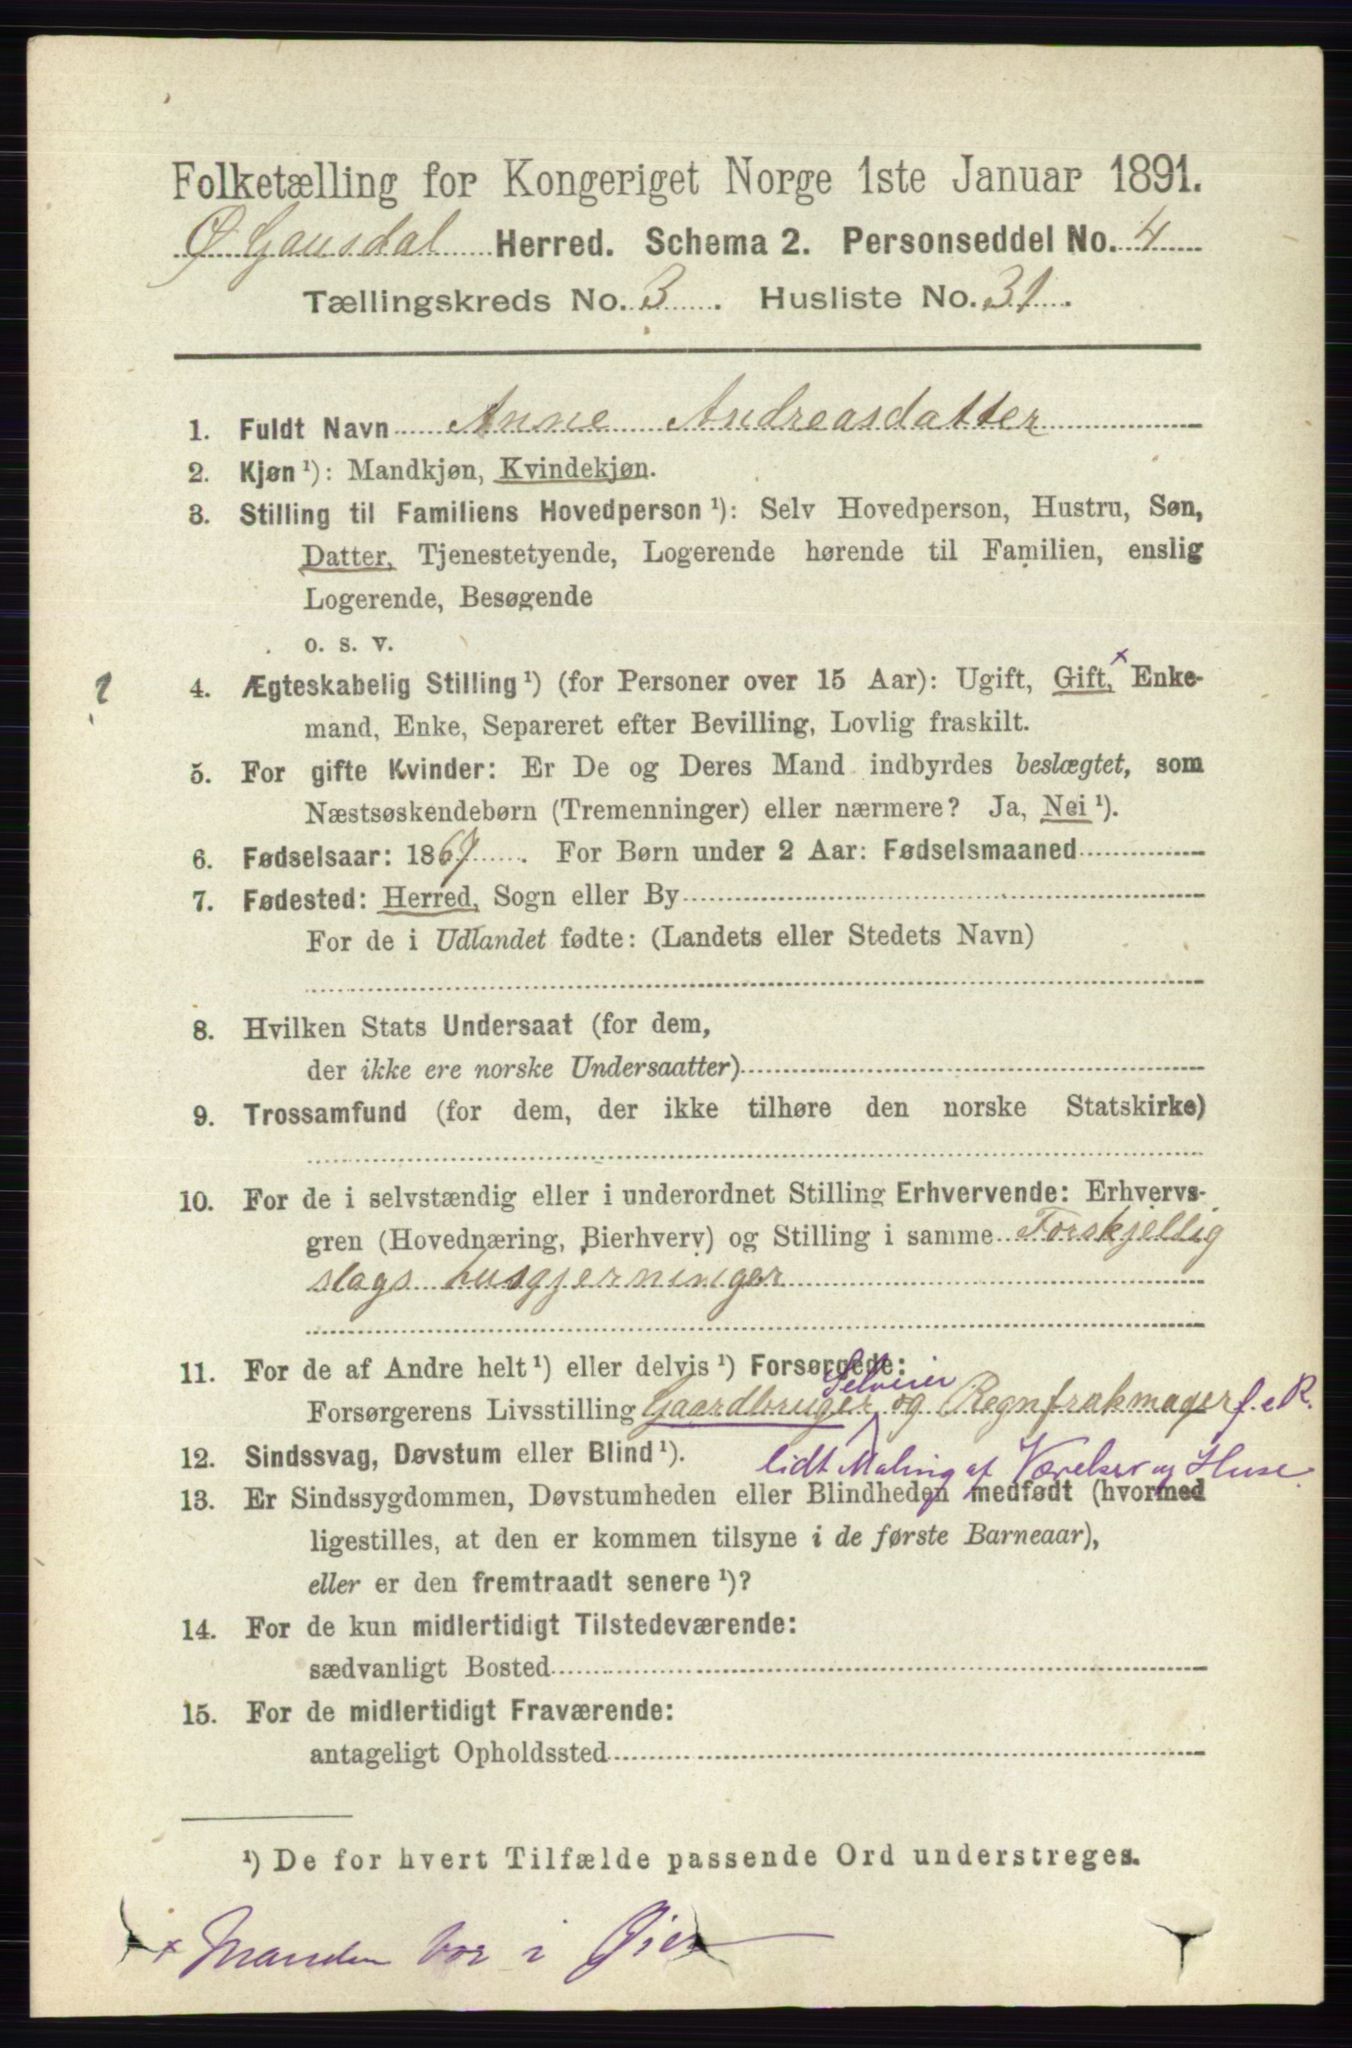 Folketælling for Kongeriget Norge 1ste Januar 1891.
Ø Gausdal Herred. Schema 2. Personseddel No. 4
Tællingskreds No. 3. Husliste No. 31.
1. Fuldt Navn Anne Andreasdatter
2. Kjøn ¹): Mandkjøn, Kvindekjøn.
3. Stilling til Familiens Hovedperson ¹): Selv Hovedperson, Hustru, Søn,
Datter, Tjenestetyende, Logerende hørende til Familien, enslig
Logerende, Besøgende
o. s. v.
? 4. Ægteskabelig Stilling ¹) (for Personer over 15 Aar): Ugift, Gift, × Enke-
mand, Enke, Separeret efter Bevilling, Lovlig fraskilt.
5. For gifte Kvinder: Er De og Deres Mand indbyrdes beslægtet, som
Næstsøskendebørn (Tremenninger) eller nærmere? Ja, Nei ¹).
6. Fødselsaar: 1867. For Børn under 2 Aar: Fødselsmaaned
7. Fødested: Herred, Sogn eller By
For de i Udlandet fødte: (Landets eller Stedets Navn)
8. Hvilken Stats Undersaat (for dem,
der ikke ere norske Undersaatter)
9. Trossamfund (for dem, der ikke tilhøre den norske Statskirke)
10. For de i selvstændig eller i underordnet Stilling Erhvervende: Erhvervs-
gren (Hovednæring, Bierhverv) og Stilling i samme Forskjellig
slags husgjerninger
11. For de af Andre helt ¹) eller delvis ¹) Forsørgede:
Selveier
Forsørgerens Livsstilling Gaardbruger og Regnfrakmager f. e R.
12. Sindssvag, Døvstum eller Blind ¹). lidt Maling af Værelser og Huse.
13. Er Sindssygdommen, Døvstumheden eller Blindheden medfødt (hvormed
ligestilles, at den er kommen tilsyne i de første Barneaar),
eller er den fremtraadt senere ¹)?
14. For de kun midlertidigt Tilstedeværende:
sædvanligt Bosted
15. For de midlertidigt Fraværende:
antageligt Opholdssted
¹) De for hvert Tilfælde passende Ord understreges.
× Manden bor i Øier